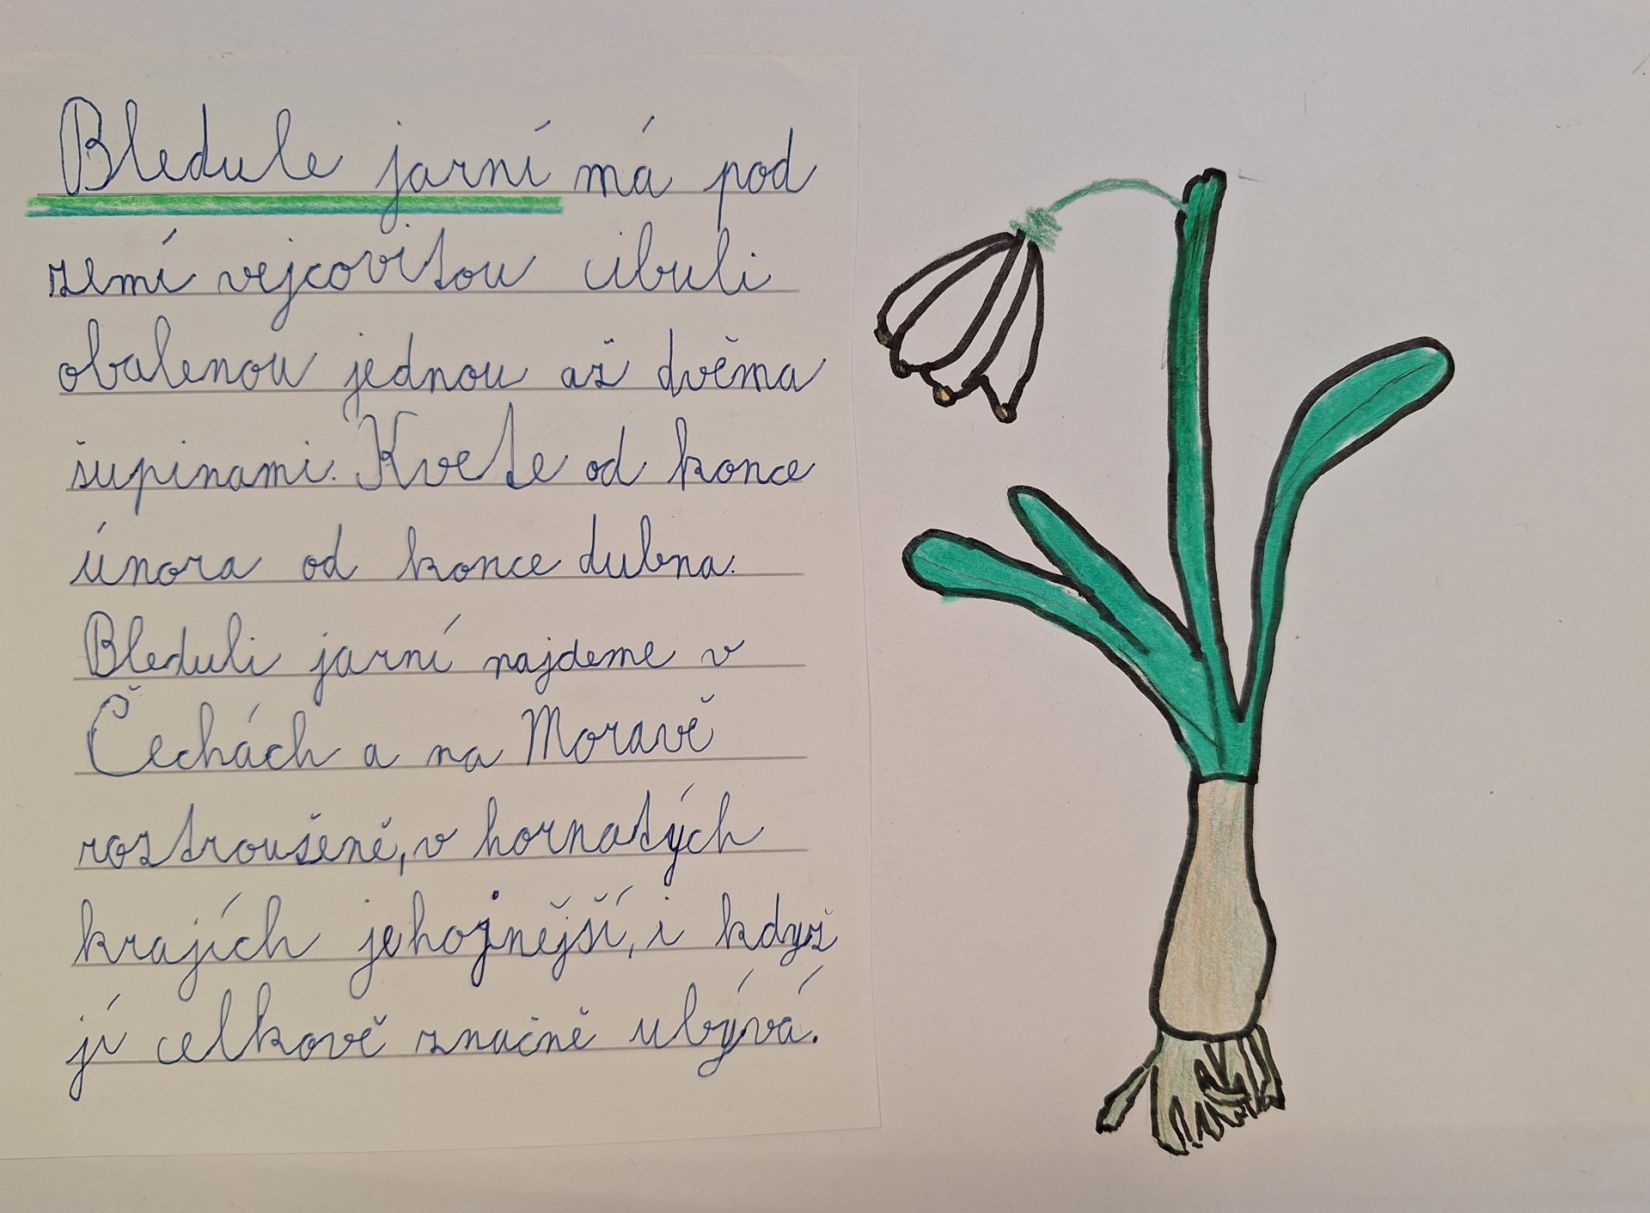 Bledule jarní má pod
zemí vejcovitou cibuli
obalenou jednou až dvěma
šupinami. Kvete od konce
února od konce dubna.
Bleduli jarní najdeme v
Čechách a na Moravě
roztroušeně, v hornatých
krajích jehojnější, i když
jí celkově značně ubývá.